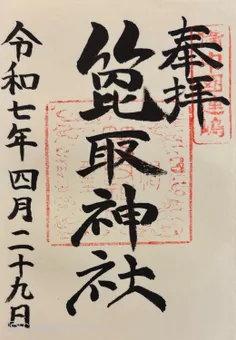 奉拝
箆取神社
令和七年四月二十九日